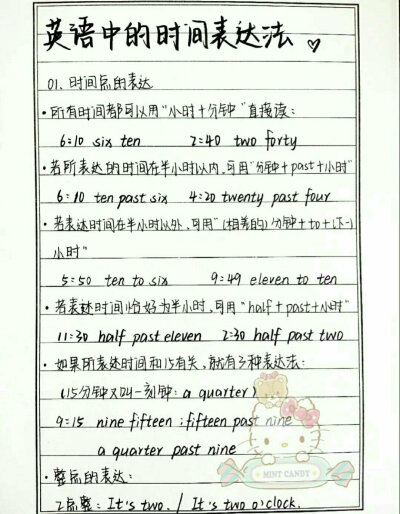 英语中的时间表达法
01. 时间点的表达
·所有时间都可以用“小时+分钟”直接读:
6:10 six ten 2:40 two forty
·若所表达的时间在半小时以内,可用“分钟+past+小时”
6:10 ten past six 4:20 twenty past four
·若表达时间在半小时以外,可用“(相差的)分钟+to+(下一)
小时”
5:50 ten to six 9:49 eleven to ten
·若表达时间恰好为半小时,可用“half+past+小时”
11:30 half past eleven 2:30 half past two
·如果所表达时间和15有关,就有3种表达法:
(15分钟又叫一刻钟: a quarter)
9:15 nine fifteen ; fifteen past nine
a quarter past nine
·整点的表达:
2点整: It's two. / It's two o'clock.
MINT CANDY